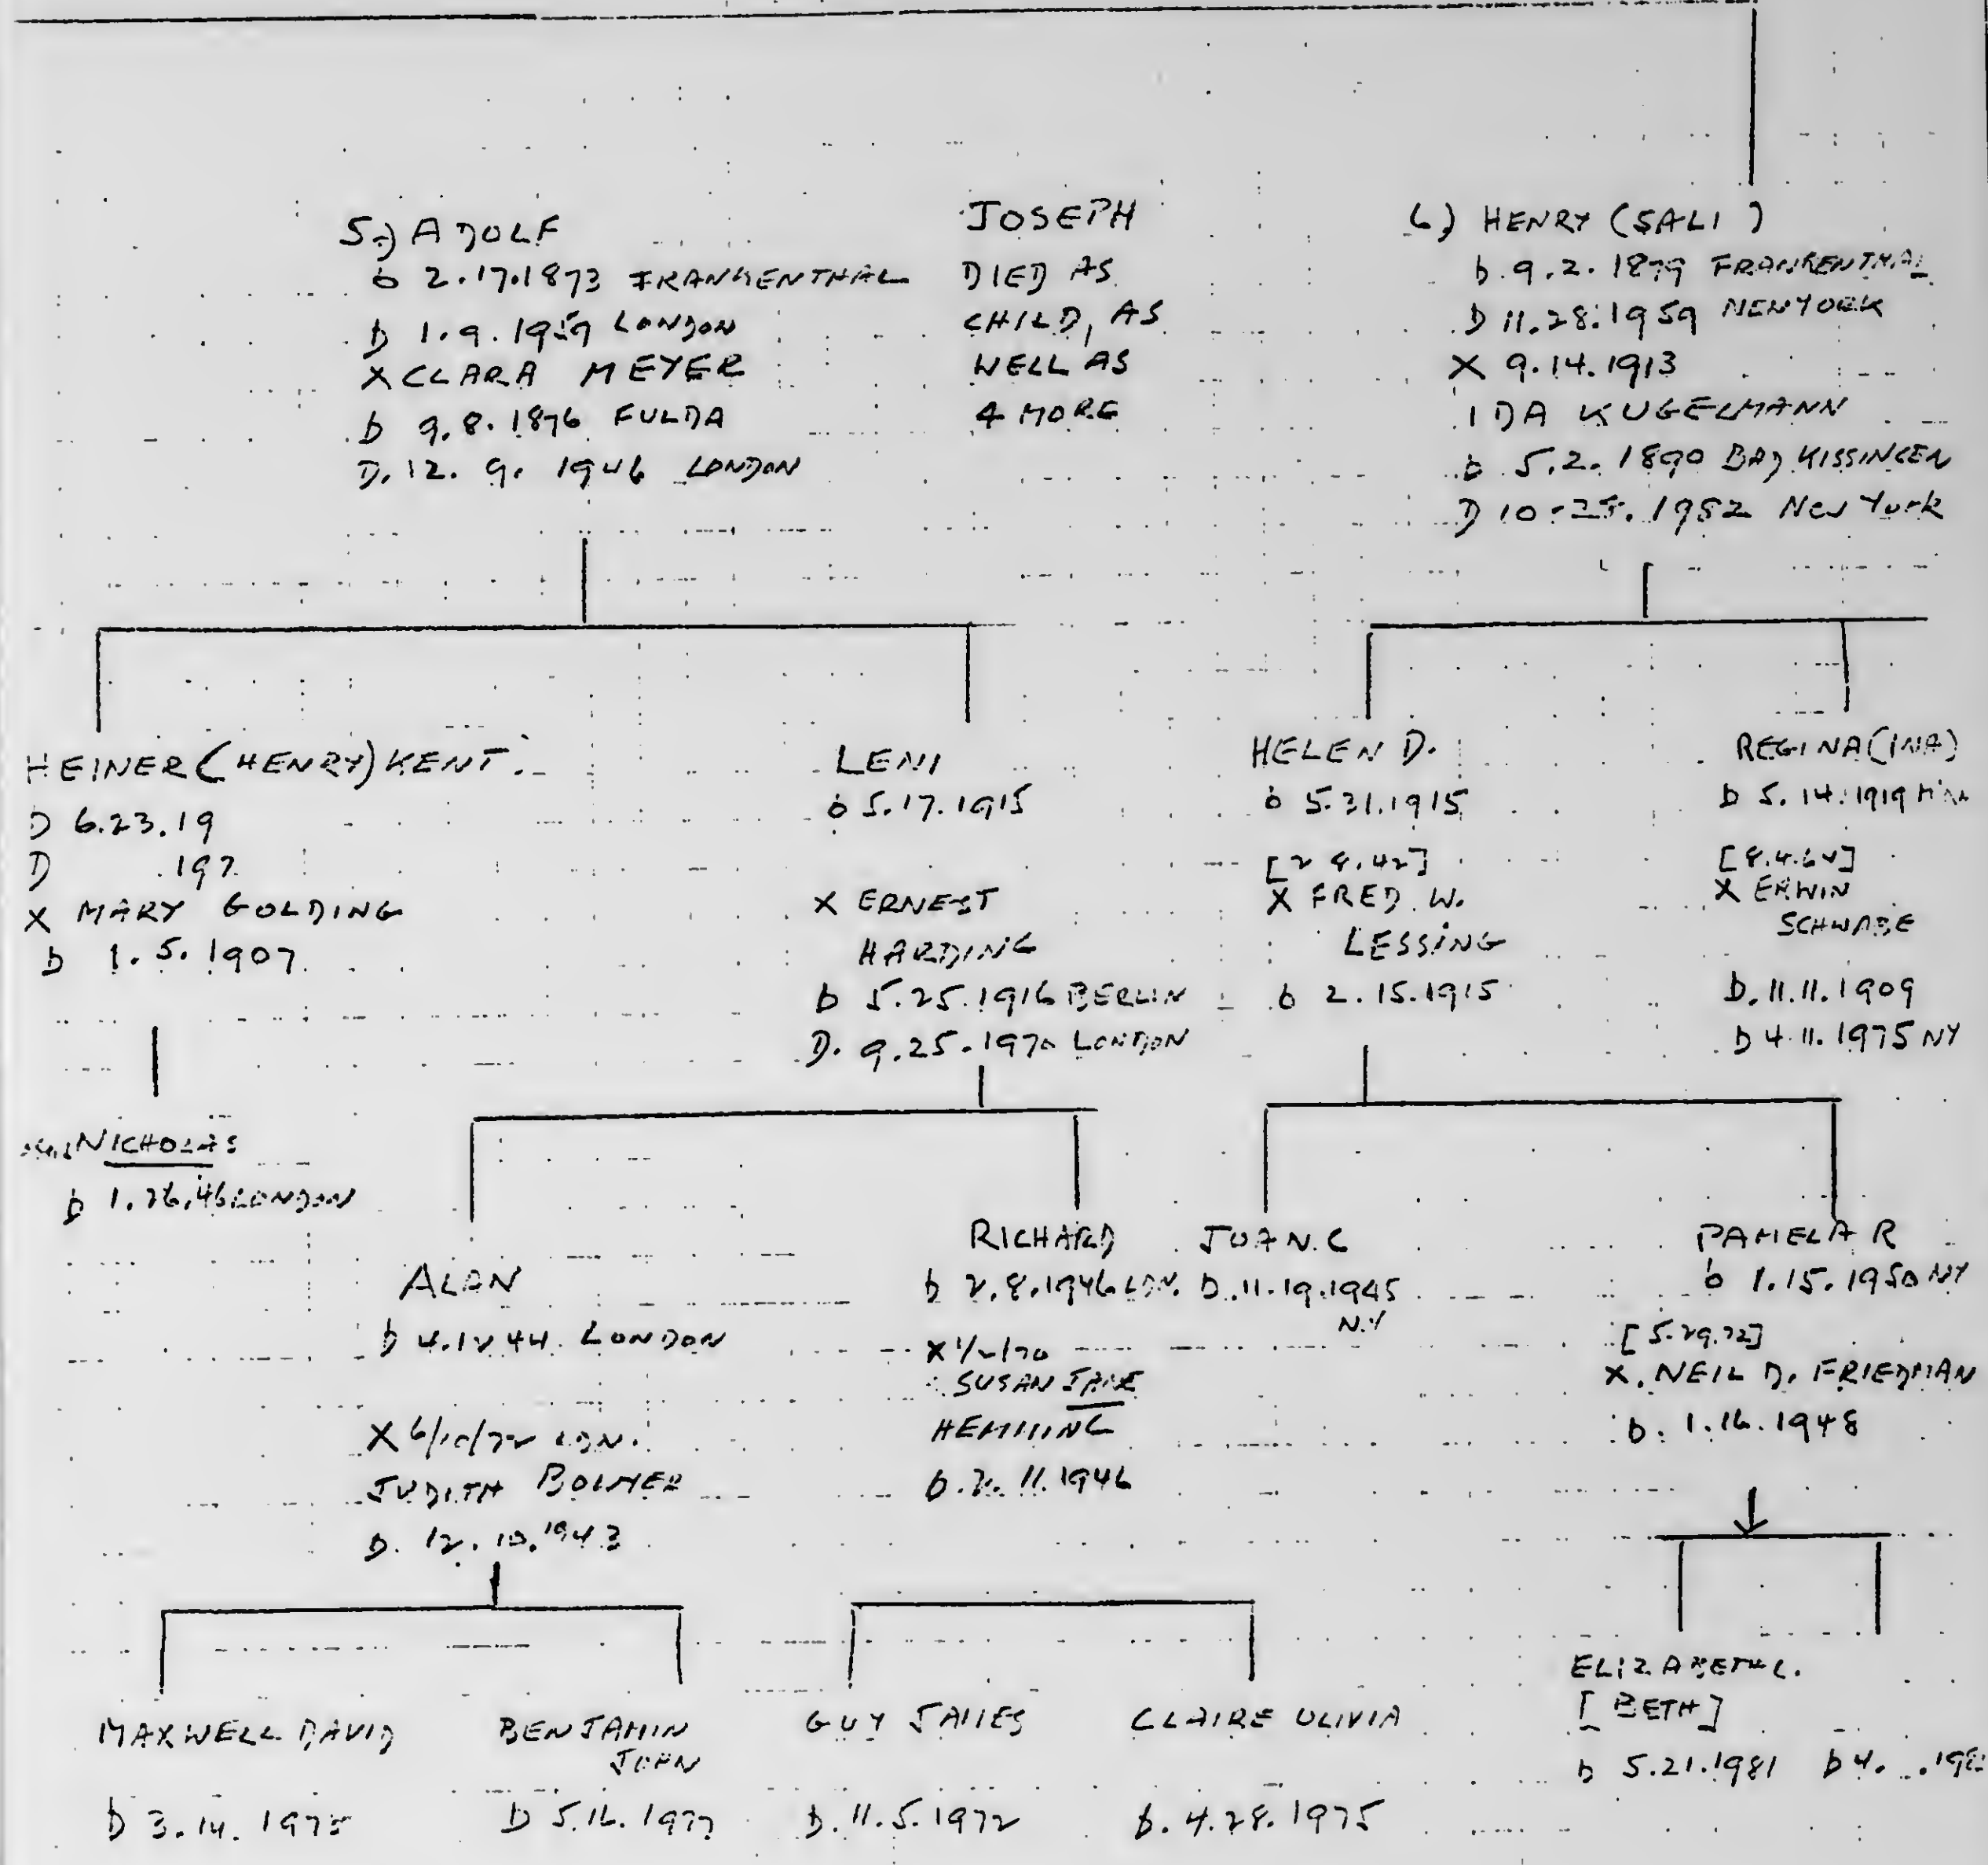 5.) ADOLF
b 2.17.1873 FRANKENTHAL
D 1.9.1959 LONDON
X CLARA MEYER
b 9.8.1876 FULDA
D. 12. 9. 1946 LONDON
JOSEPH
DIED AS
CHILD, AS
WELL AS
4 MORE
6) HENRY (SALI)
b. 9.2.1879 FRANKENTHAL
D 11.28.1959 NEW YORK
X 9.14.1913
IDA KUGELMANN
b 5.2.1890 BAD KISSINGEN
D 10.25.1982 New York
HEINER (HENRY) KENT
D 6.23.19
D .197
X MARY GOLDING
b 1.5.1907
LENI
b 5.17.1915
X ERNEST
HARDING
b 5.25.1916 BERLIN
D. 9.25.1970 LONDON
HELEN D.
b 5.31.1915
X FRED W.
LESSING
b 2.15.1915
REGINA (INA)
b 5.14.1919
X ERWIN
SCHWABE
b. 11.11.1909
D 4.11.1975 NY
NICHOLAS
b 1.26.46 LONDON
ALAN
b 4.12 44. LONDON
X 6/10/72 LDN.
JUDITH BOLMER
b. 12.10.1943
RICHARD
b 2.8.1946 LDN.
X 1/2/70
SUSAN JANE
HEMMING
b. 2. 11. 1946
JOAN. C
b. 11.19.1945
N.Y
PAMELA R
b 1.15.1950 NY
[5.29.72]
X. NEIL D. FRIEDMAN
b. 1.16.1948
MAXWELL DAVID
b 3.14.1975
BENJAMIN
JOHN
b 5.16.1977
GUY JAMES
b. 11.5.1972
CLAIRE OLIVIA
b. 4.28.1975
ELIZABETH L.
[BETH]
b 5.21.1981
b 4. .198